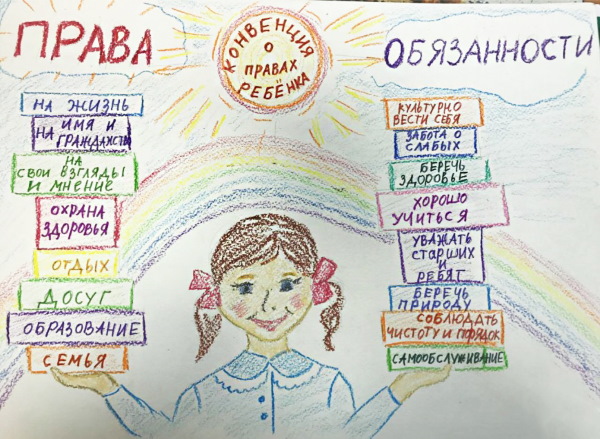 ПРАВА
КОНВЕНЦИЯ
О
ПРАВАХ
РЕБЁНКА
ОБЯЗАННОСТИ
НА ЖИЗНЬ
НА ИМЯ И
ГРАЖДАНСТВО
НА
СВОИ ВЗГЛЯДЫ
И МНЕНИЕ
ОХРАНА
ЗДОРОВЬЯ
ОТДЫХ
ДОСУГ
ОБРАЗОВАНИЕ
СЕМЬЯ
КУЛЬТУРНО
ВЕСТИ СЕБЯ
ЗАБОТА О
СЛАБЫХ
БЕРЕЧЬ
ЗДОРОВЬЕ
ХОРОШО
УЧИТЬСЯ
УВАЖАТЬ
СТАРШИХ
И
РЕБЯТ
БЕРЕЧЬ
ПРИРОДУ
СОБЛЮДАТЬ
ЧИСТОТУ И ПОРЯДОК
САМООБСЛУЖИВАНИЕ